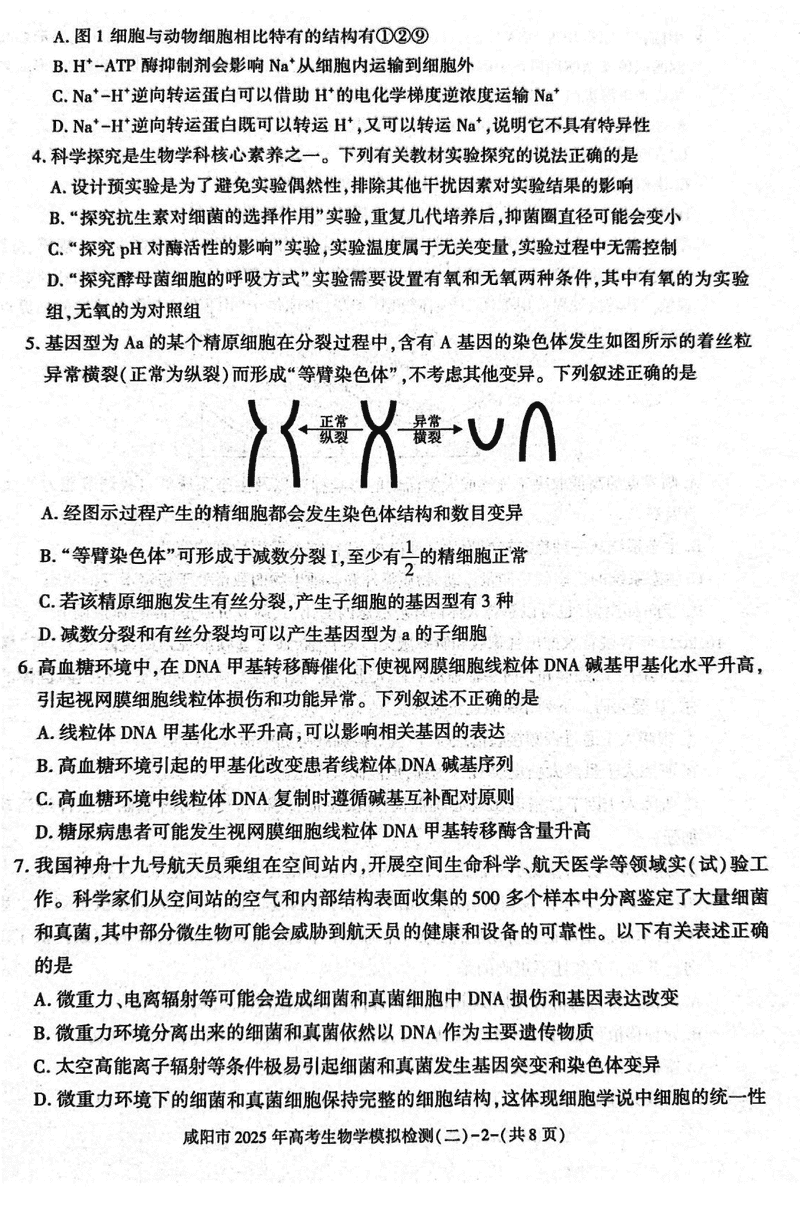 A. 图 1 细胞与动物细胞相比特有的结构有①②⑨
B. H⁺-ATP 酶抑制剂会影响 Na⁺从细胞内运输到细胞外
C. Na⁺-H⁺逆向转运蛋白可以借助 H⁺的电化学梯度逆浓度运输 Na⁺
D. Na⁺-H⁺逆向转运蛋白既可以转运 H⁺,又可以转运 Na⁺,说明它不具有特异性
4. 科学探究是生物学科核心素养之一。下列有关教材实验探究的说法正确的是
A. 设计预实验是为了避免实验偶然性,排除其他干扰因素对实验结果的影响
B. “探究抗生素对细菌的选择作用”实验,重复几代培养后,抑菌圈直径可能会变小
C. “探究 pH 对酶活性的影响”实验,实验温度属于无关变量,实验过程中无需控制
D. “探究酵母菌细胞的呼吸方式”实验需要设置有氧和无氧两种条件,其中有氧的为实验
组,无氧的为对照组
5. 基因型为 Aa 的某个精原细胞在分裂过程中,含有 A 基因的染色体发生如图所示的着丝粒
异常横裂(正常为纵裂)而形成“等臂染色体”,不考虑其他变异。下列叙述正确的是
正常 异常
纵裂 横裂
A. 经图示过程产生的精细胞都会发生染色体结构和数目变异
B. “等臂染色体”可形成于减数分裂 I,至少有1/2的精细胞正常
C. 若该精原细胞发生有丝分裂,产生子细胞的基因型有 3 种
D. 减数分裂和有丝分裂均可以产生基因型为 a 的子细胞
6. 高血糖环境中,在 DNA 甲基转移酶催化下使视网膜细胞线粒体 DNA 碱基甲基化水平升高,
引起视网膜细胞线粒体损伤和功能异常。下列叙述不正确的是
A. 线粒体 DNA 甲基化水平升高,可以影响相关基因的表达
B. 高血糖环境引起的甲基化改变患者线粒体 DNA 碱基序列
C. 高血糖环境中线粒体 DNA 复制时遵循碱基互补配对原则
D. 糖尿病患者可能发生视网膜细胞线粒体 DNA 甲基转移酶含量升高
7. 我国神舟十九号航天员乘组在空间站内,开展空间生命科学、航天医学等领域实(试)验工
作。科学家们从空间站的空气和内部结构表面收集的 500 多个样本中分离鉴定了大量细菌
和真菌,其中部分微生物可能会威胁到航天员的健康和设备的可靠性。以下有关表述正确
的是
A. 微重力、电离辐射等可能会造成细菌和真菌细胞中 DNA 损伤和基因表达改变
B. 微重力环境分离出来的细菌和真菌依然以 DNA 作为主要遗传物质
C. 太空高能离子辐射等条件极易引起细菌和真菌发生基因突变和染色体变异
D. 微重力环境下的细菌和真菌细胞保持完整的细胞结构,这体现细胞学说中细胞的统一性
咸阳市 2025 年高考生物学模拟检测(二)-2-(共 8 页)